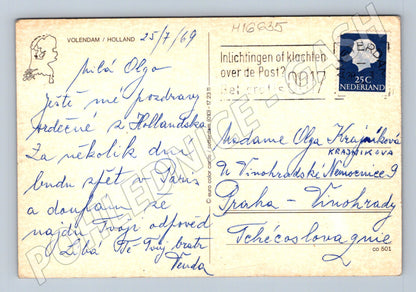 VOLENDAM / HOLLAND
25/7/69
Milá Olgo
Ještě mé pozdravy
srdečné z Hollandska
Za několik dnů
budu spět v Paris
a doufam že
najdu Tvoji odpověd
Líbá Tě Tvůj bratr
Venda
© euro color cards
H16635
Inlichtingen of klachten
over de Post?
Bel gratis 0017
25C
NEDERLAND
Madame Olga Krajníková
KRAJNIKOVA
U Vinohradské Nemocnice 9
Praha - Vinohrady
Tchécoslovaquie
co 501
POHLEDNICE - CASH